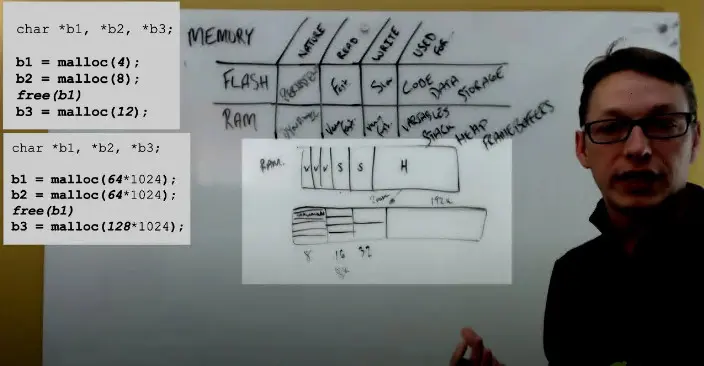 char *b1, *b2, *b3;
b1 = malloc(4);
b2 = malloc(8);
free(b1)
b3 = malloc(12);
char *b1, *b2, *b3;
b1 = malloc(64*1024);
b2 = malloc(64*1024);
free(b1)
b3 = malloc(128*1024);
MEMORY
NATURE READ WRITE USED FOR
FLASH Fast Slow CODE DATA STORAGE
RAM Very fast VARIABLES STACK HEAP FRAMEBUFFERS
RAM.
V V V S S H
192k
8 16 32